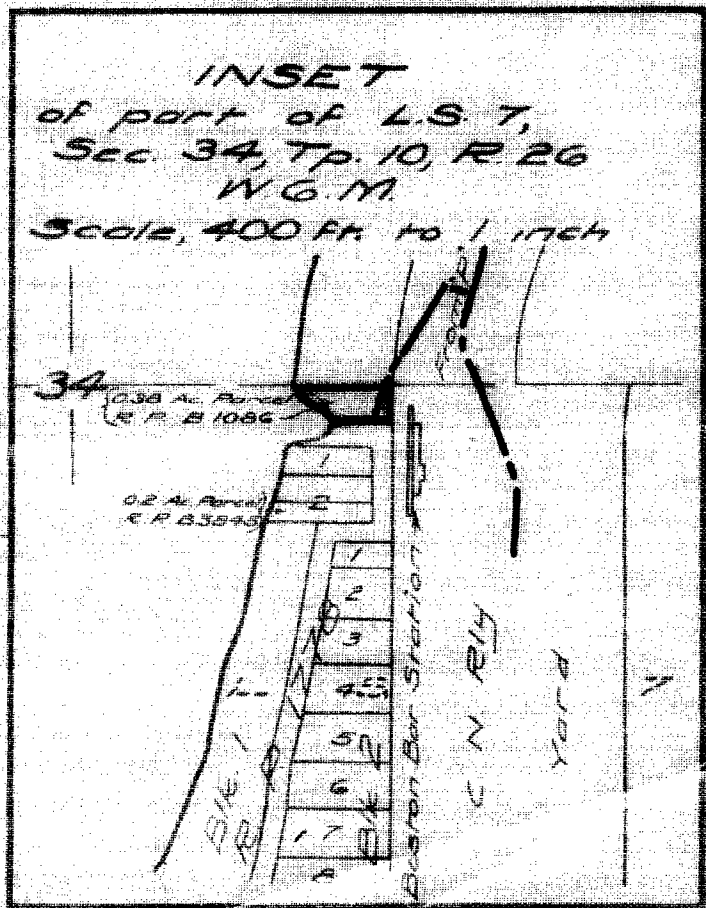 INSET
of part of L.S. 7,
Sec. 34, Tp. 10, R 26
W.6.M.
Scale, 400 Ft. to 1 inch
34
0.38 Ac. Parcel
R. P. B 1086
1
0.2 Ac. Parcel
2
R. P. B3848
1
2
3
4
5
6
7
Blk. 1
Blk 2
Boston Bar Station
C N Rly
Yard
7